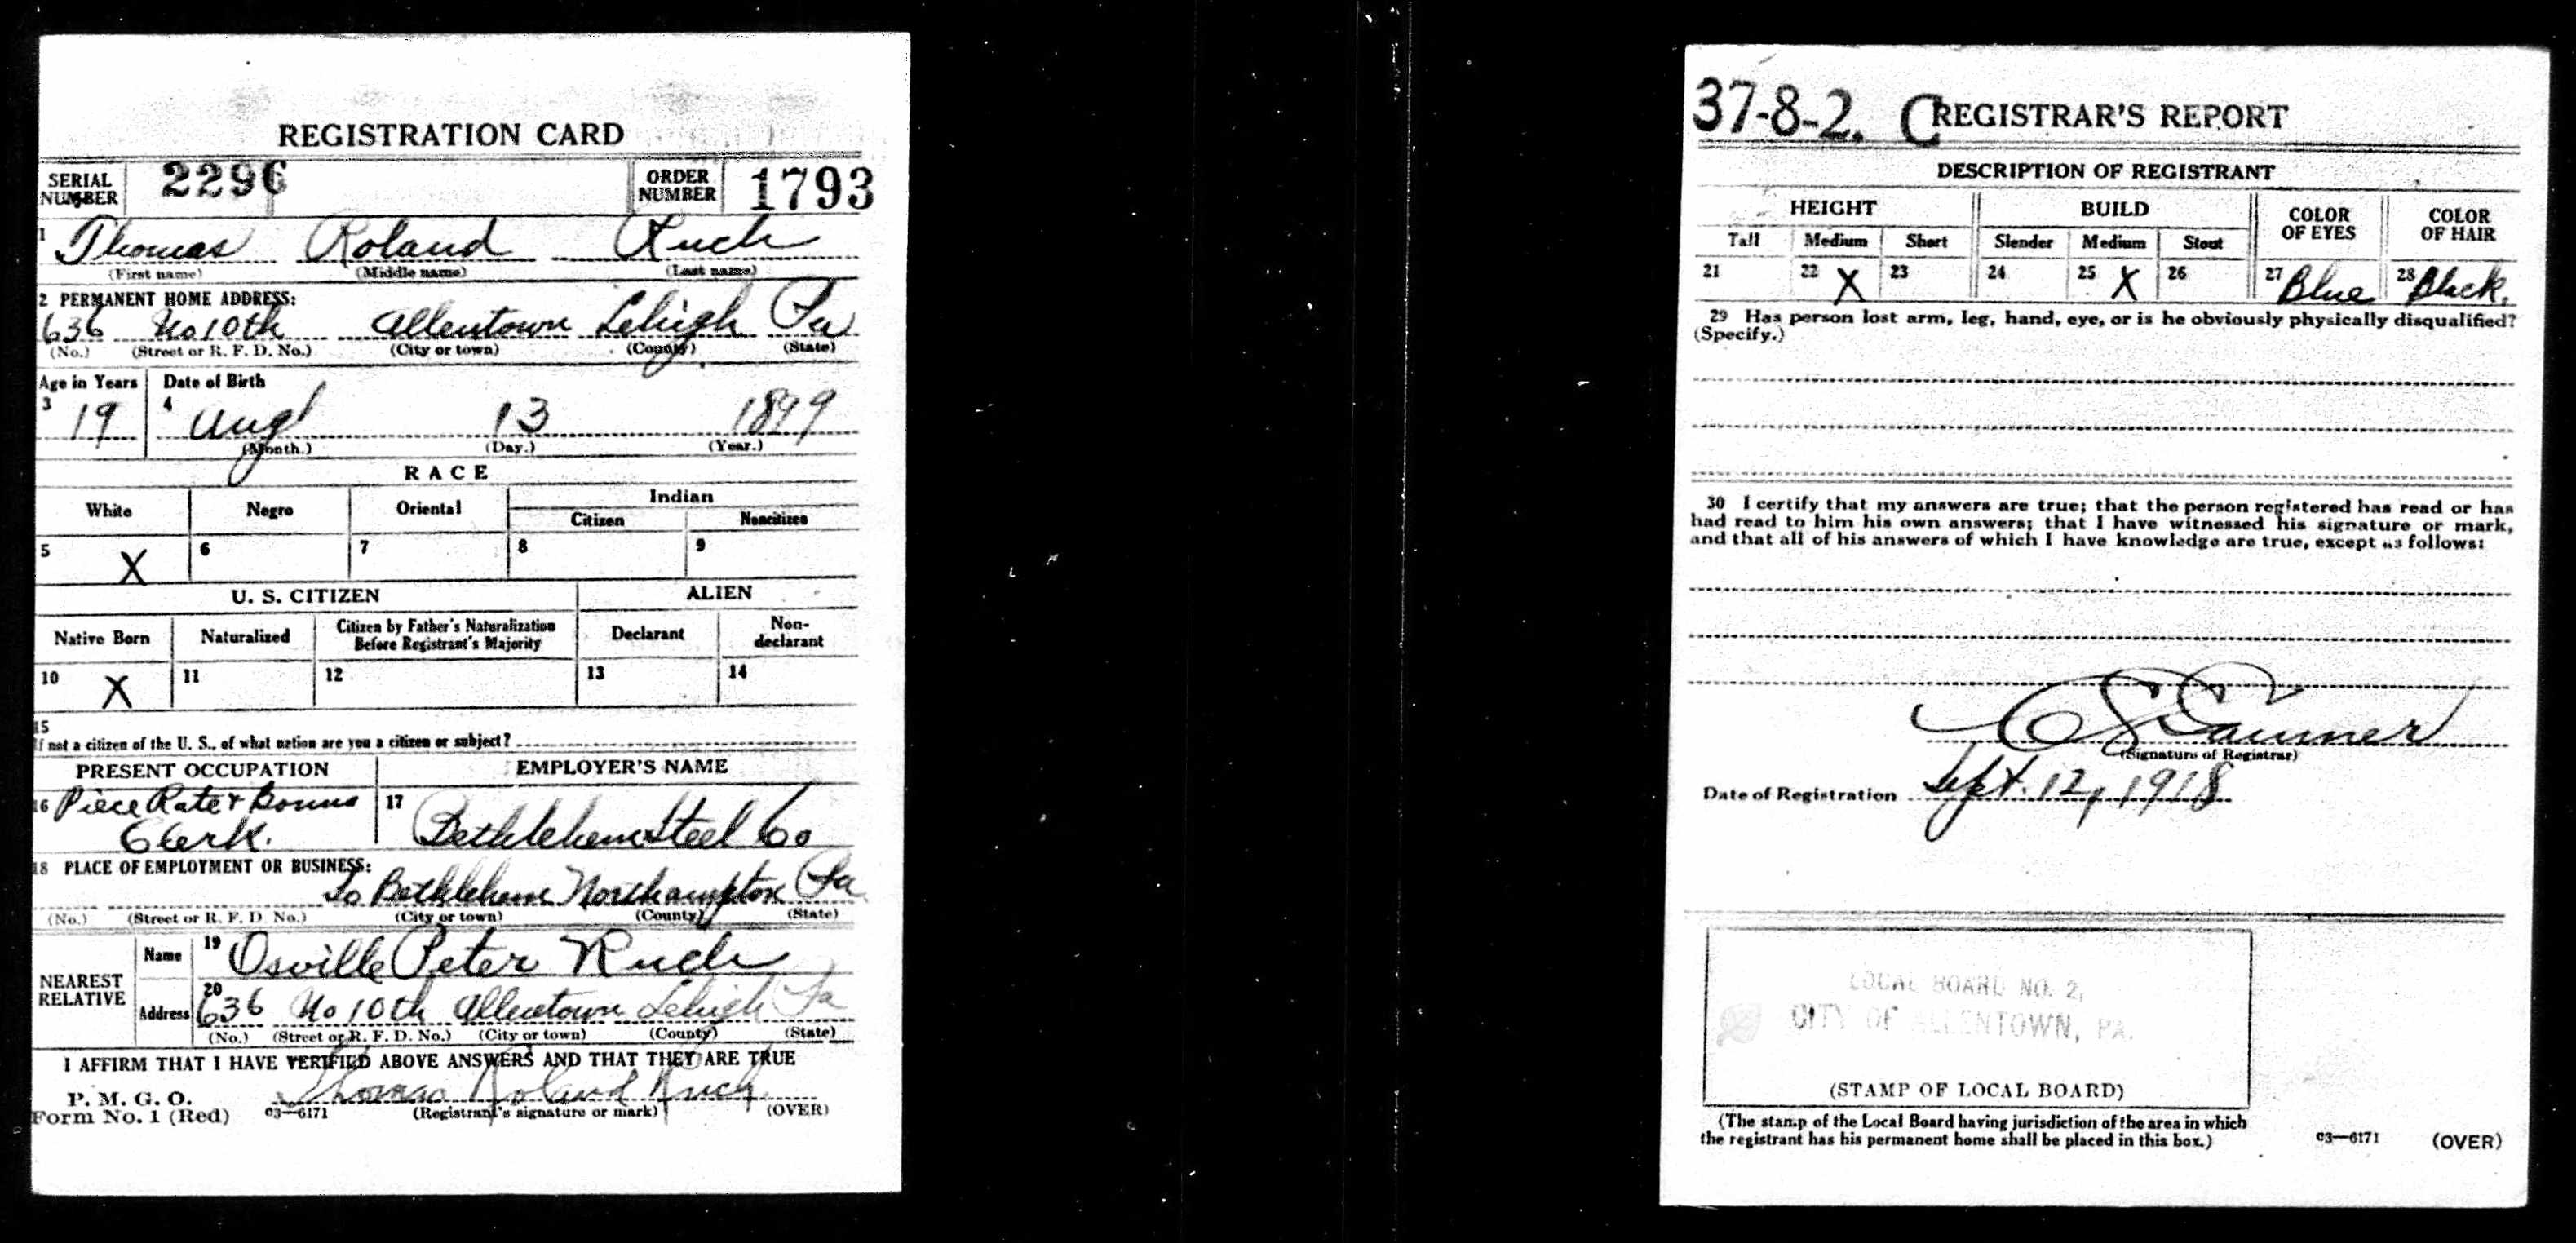 REGISTRATION CARD
SERIAL NUMBER 2296 ORDER NUMBER 1793
1 Thomas Roland Ruch
(First name) (Middle name) (Last name)
2 PERMANENT HOME ADDRESS:
636 No 10th Allentown Lehigh Pa
(No.) (Street or R. F. D. No.) (City or town) (County) (State)
Age in Years Date of Birth
3 19 4 Aug 13 1899
(Month.) (Day.) (Year.)
RACE
White Negro Oriental Indian
Citizen Noncitizen
5 X 6 7 8 9
U. S. CITIZEN ALIEN
Native Born Naturalized Citizen by Father's Naturalization Before Registrant's Majority Declarant Non-declarant
10 X 11 12 13 14
15
If not a citizen of the U. S., of what nation are you a citizen or subject?
PRESENT OCCUPATION EMPLOYER'S NAME
16 Piece Rate & Bonus Clerk. 17 Bethlehem Steel Co
18 PLACE OF EMPLOYMENT OR BUSINESS:
So Bethlehem Northampton Pa
(No.) (Street or R. F. D. No.) (City or town) (County) (State)
NEAREST RELATIVE
Name 19 Osville Peter Ruch
Address 20 636 No 10th Allentown Lehigh Pa
(No.) (Street or R. F. D. No.) (City or town) (County) (State)
I AFFIRM THAT I HAVE VERIFIED ABOVE ANSWERS AND THAT THEY ARE TRUE
P. M. G. O.
Form No. 1 (Red) c3—6171 Thomas Roland Ruch.
(Registrant's signature or mark) (OVER)
37-8-2. C REGISTRAR'S REPORT
DESCRIPTION OF REGISTRANT
HEIGHT BUILD COLOR OF EYES COLOR OF HAIR
Tall Medium Short Slender Medium Stout
21 22 X 23 24 25 X 26 27 Blue 28 Black.
29 Has person lost arm, leg, hand, eye, or is he obviously physically disqualified?
(Specify.)
30 I certify that my answers are true; that the person registered has read or has
had read to him his own answers; that I have witnessed his signature or mark,
and that all of his answers of which I have knowledge are true, except as follows:
(Signature of Registrar)
Date of Registration Sept. 12, 1918
LOCAL BOARD NO. 2,
CITY OF ALLENTOWN, PA.
(STAMP OF LOCAL BOARD)
(The stamp of the Local Board having jurisdiction of the area in which
the registrant has his permanent home shall be placed in this box.)
c3—6171 (OVER)